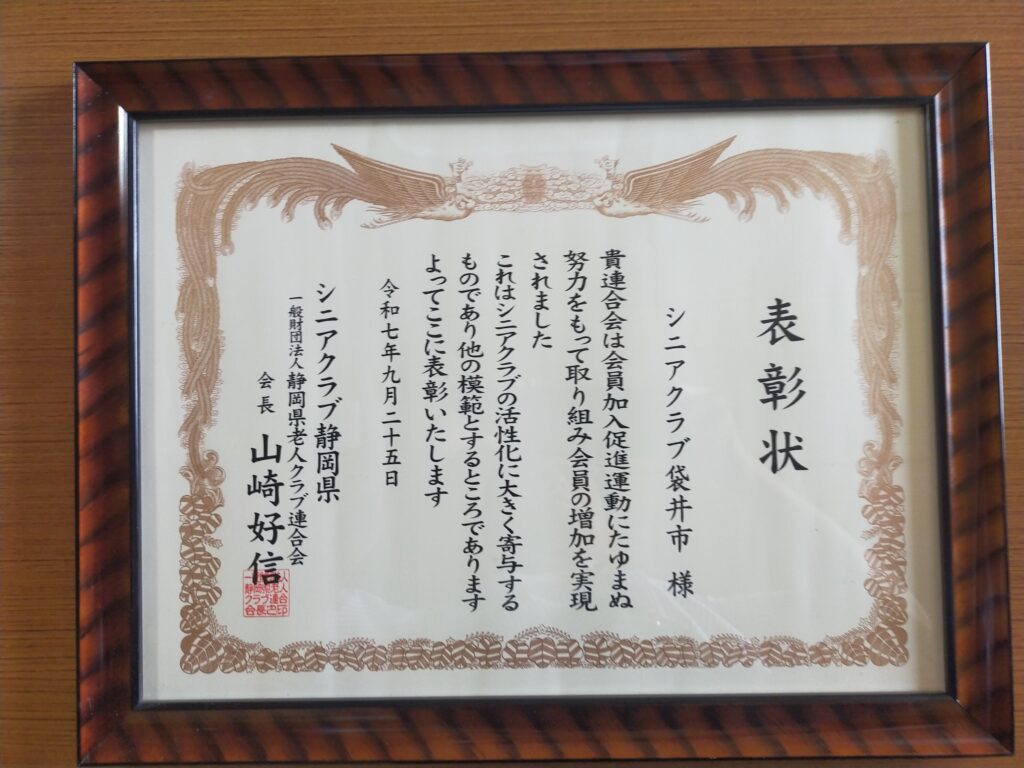 表彰状
シニアクラブ袋井市 様
貴連合会は会員加入促進運動にたゆまぬ
努力をもって取り組み会員の増加を実現
されました
これはシニアクラブの活性化に大きく寄与する
ものであり他の模範とするところであります
よってここに表彰いたします
令和七年九月二十五日
シニアクラブ静岡県
一般財団法人 静岡県老人クラブ連合会
会長 山崎好信